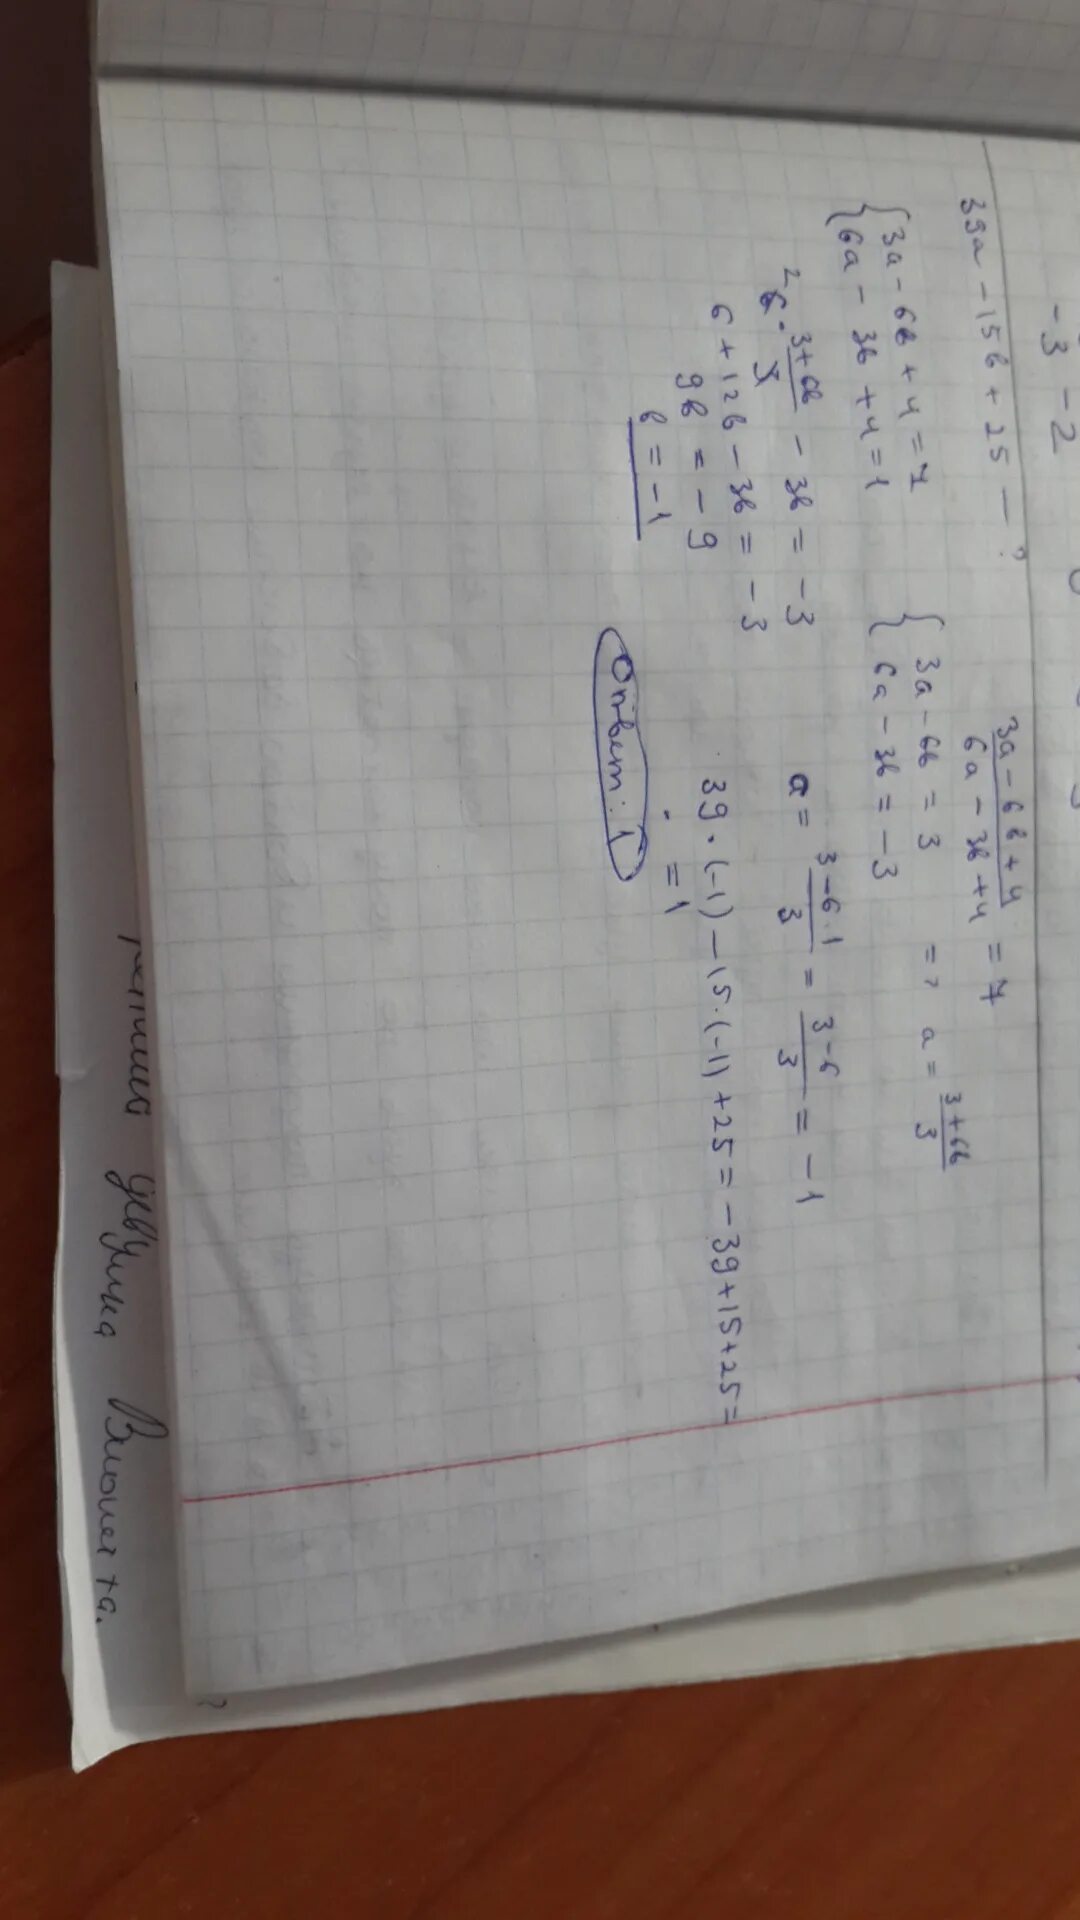 -3 -2
39a - 15b + 25 — ?
(3a - 6b + 4)/(6a - 3b + 4) = 7
{3a - 6b + 4 = 7
{6a - 3b + 4 = 1
{3a - 6b = 3
{6a - 3b = -3
=> a = (3 + 6b)/3
²6 · (3 + 6b)/3 - 3b = -3
6 + 12b - 3b = -3
9b = -9
b = -1
a = (3 - 6 · 1)/3 = (3 - 6)/3 = -1
39 · (-1) - 15 · (-1) + 25 = -39 + 15 + 25 =
= 1
Ответ: 1